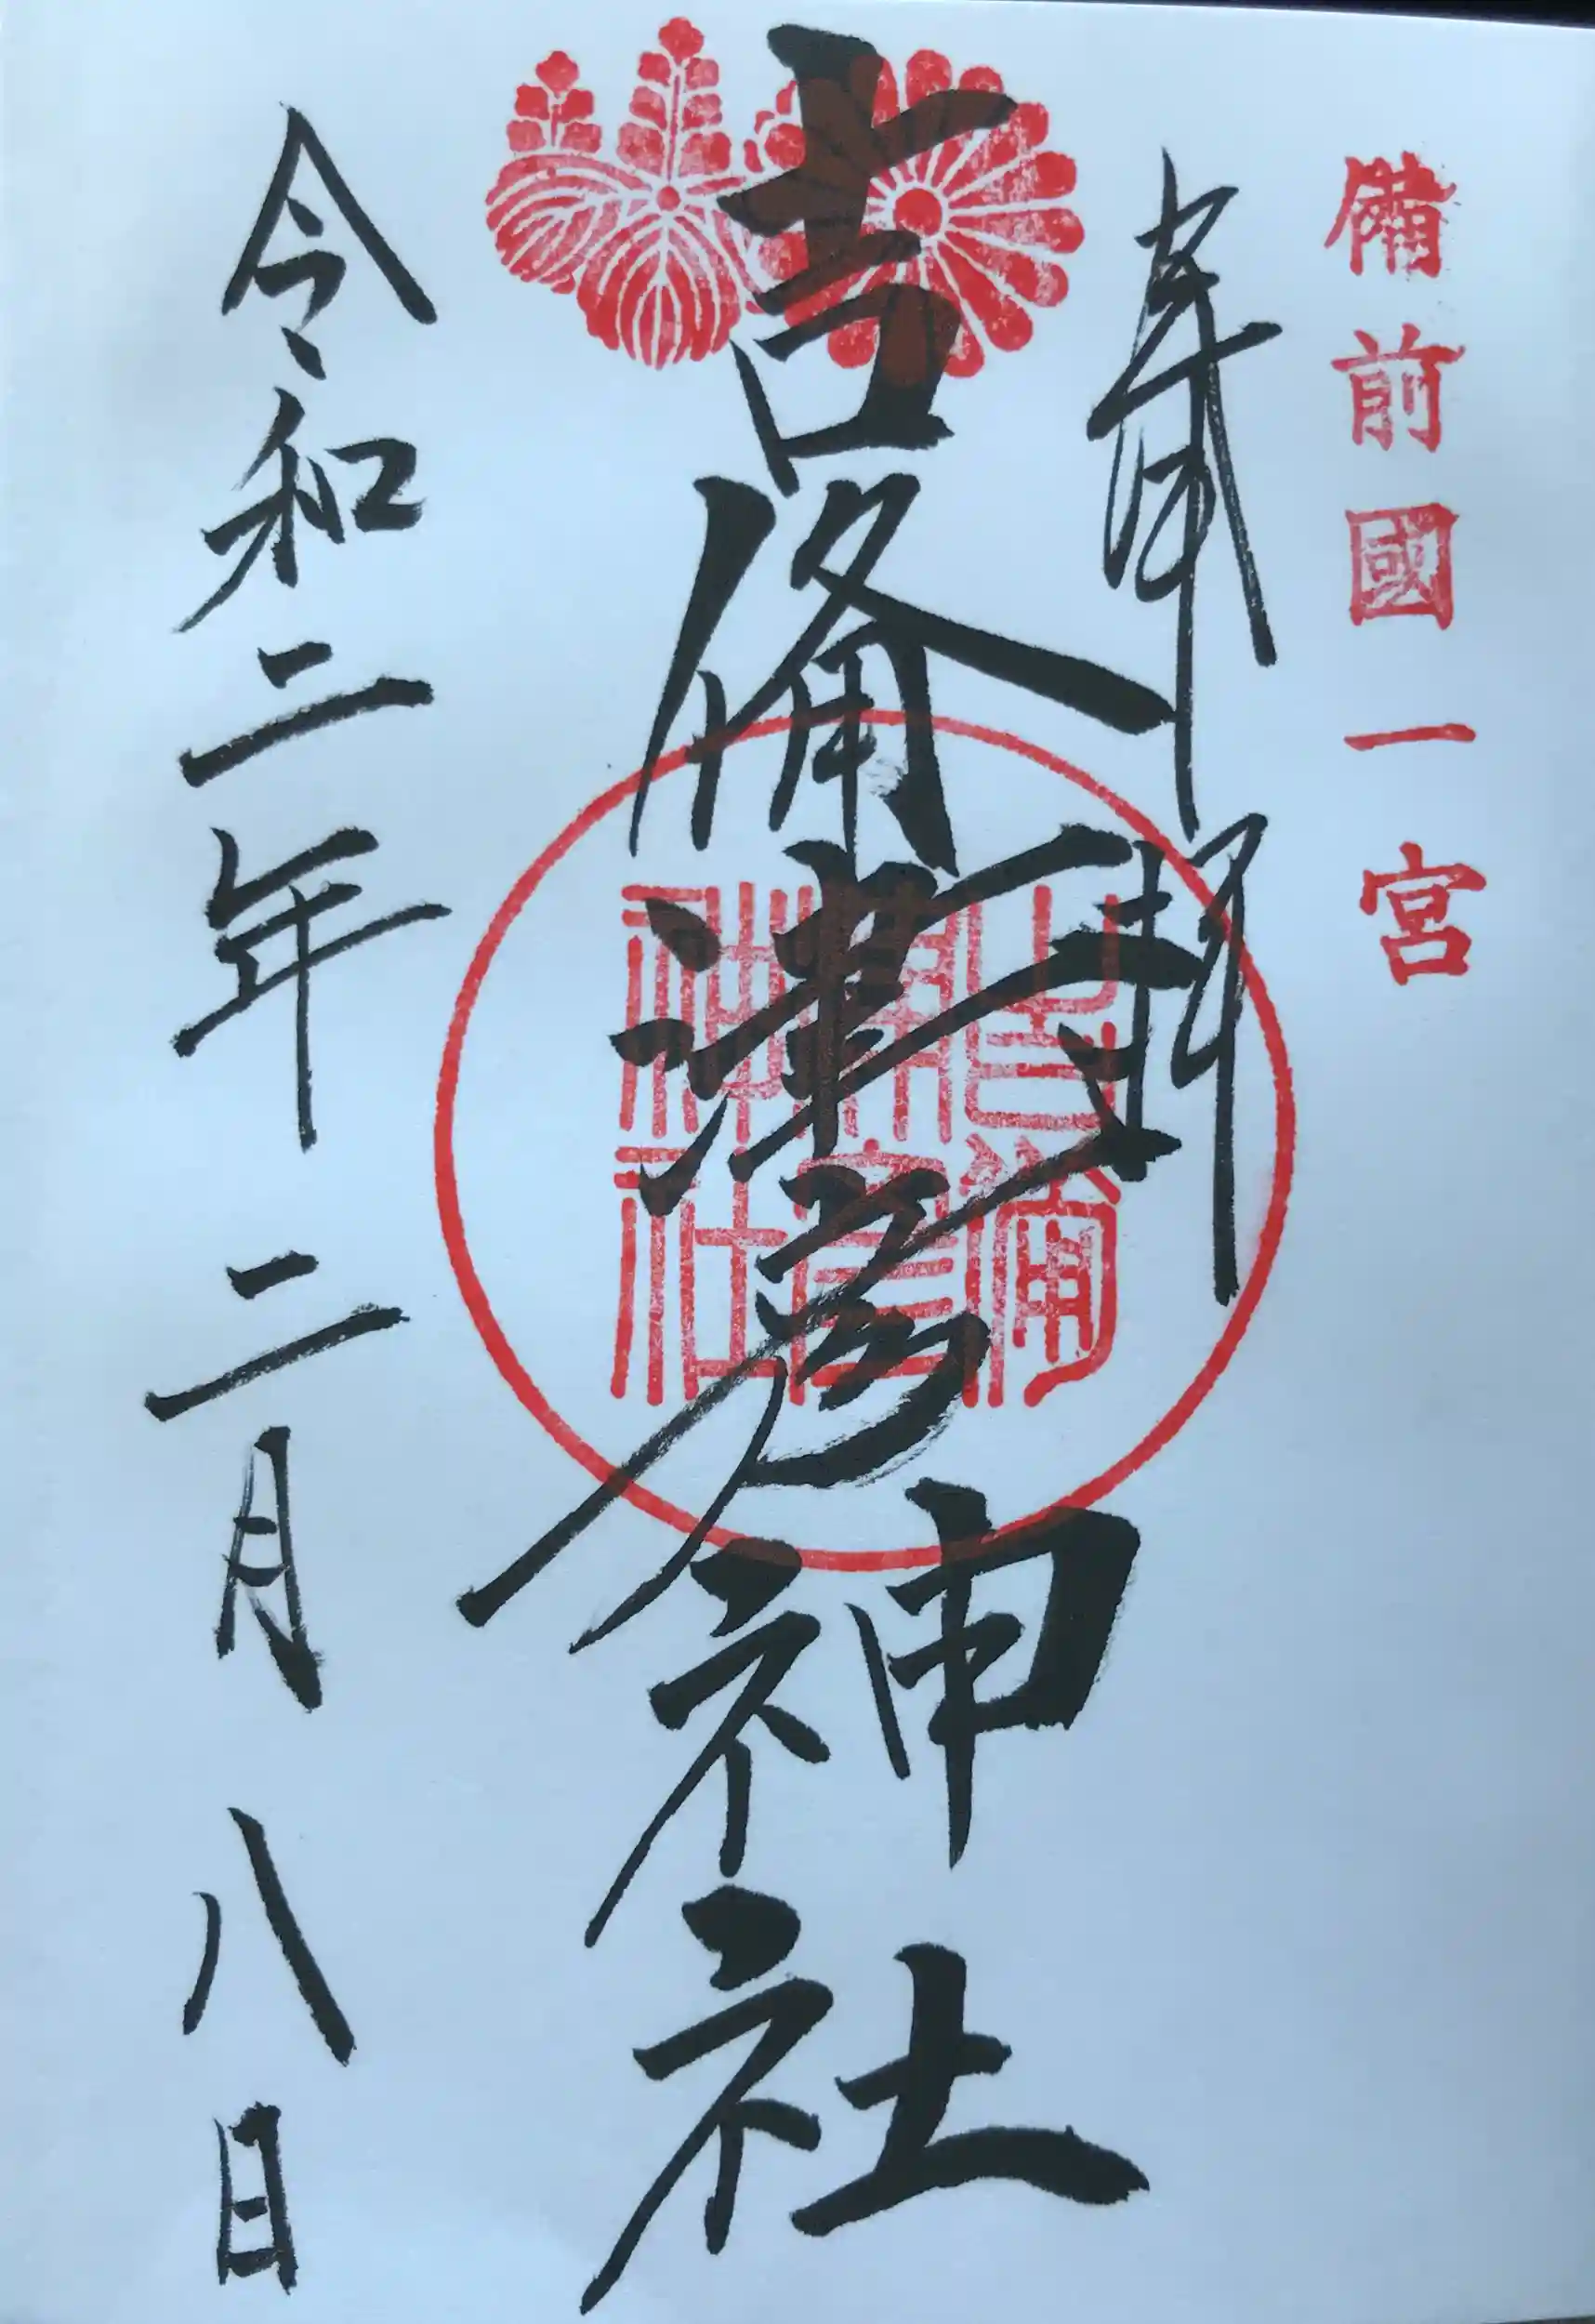 備前國一宮
奉拝
吉備津彦神社
吉備津宮神社
令和二年二月八日